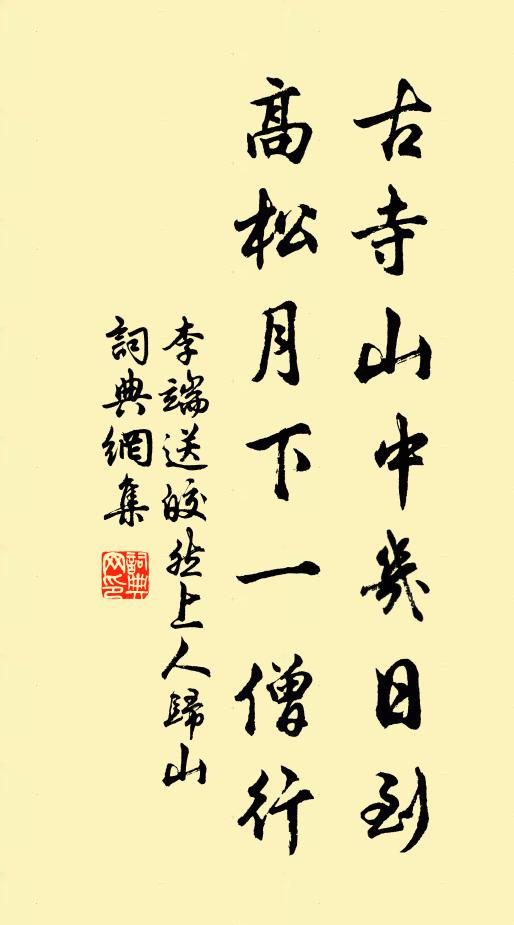 古寺山中幾日到
高松月下一僧行
李端送皎然上人歸山
詞典網集
詞典網印